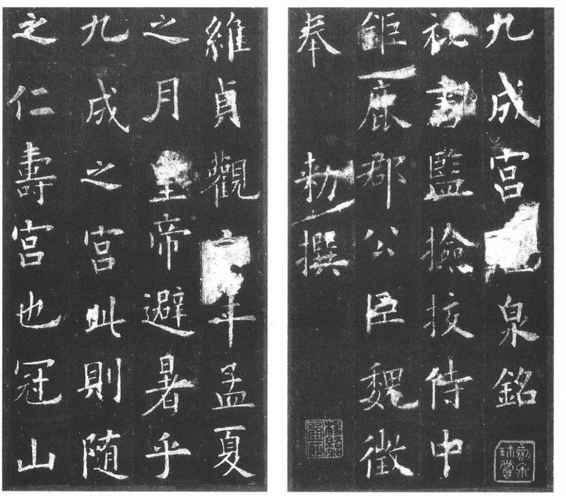 九成宮泉銘
秘書監撿挍侍中
鉅鹿郡公臣魏徵
奉勑撰
維貞觀年孟夏
之月皇帝避暑乎
九成之宮此則隨
之仁壽宮也冠山